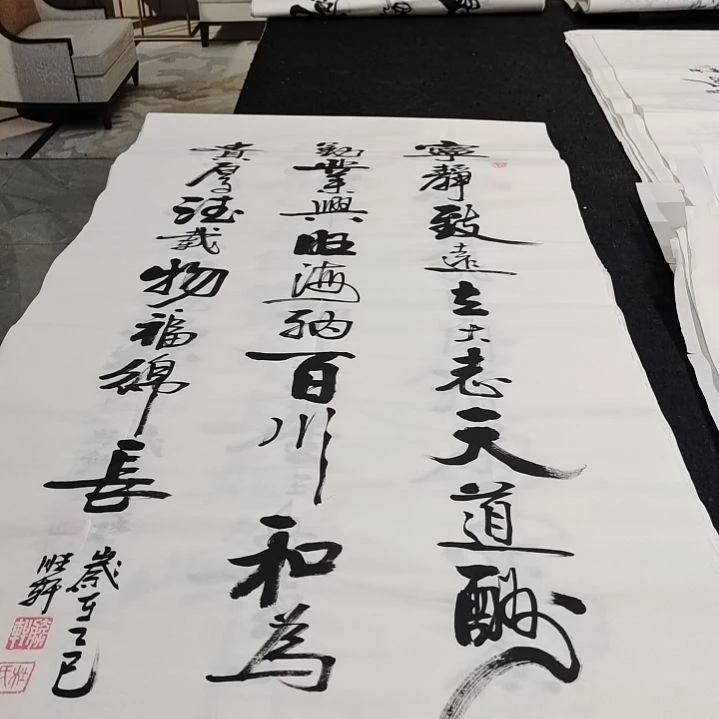 寧靜致遠立大志天道酬
勤業興旺海納百川和為
貴厚德載物福綿長
歲在乙巳
胜軒